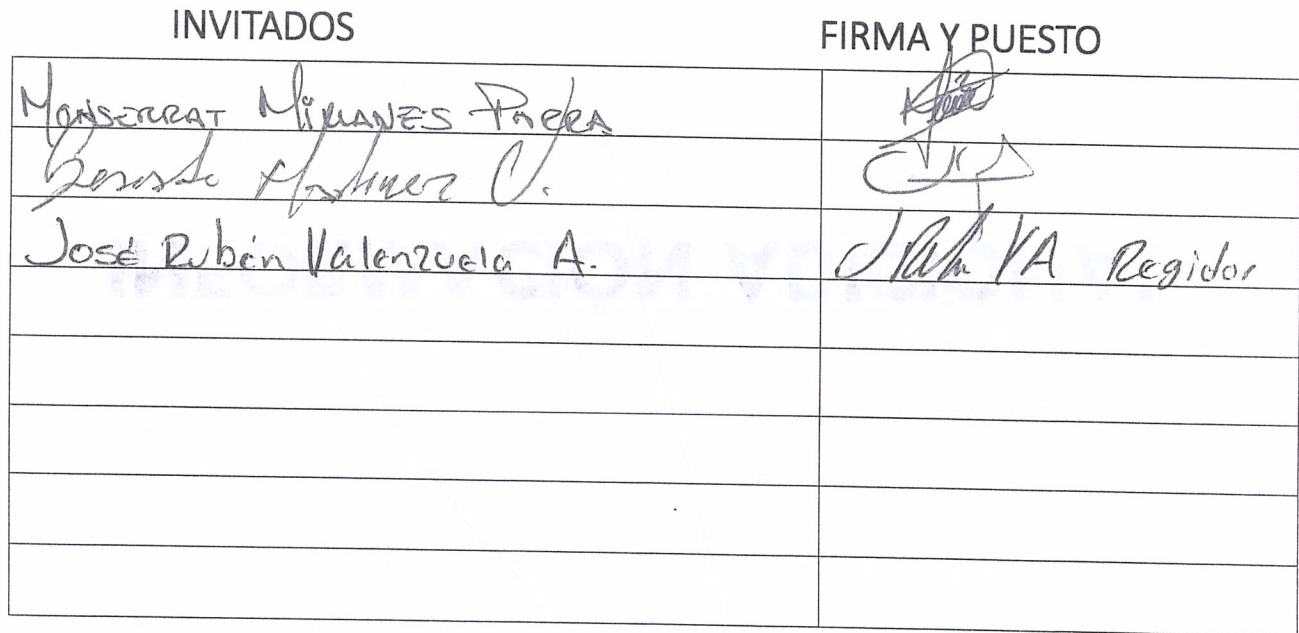 INVITADOS FIRMA Y PUESTO
MONSERRAT PARRA
Martinez C.
José Rubén Valenzuela A. Regidor